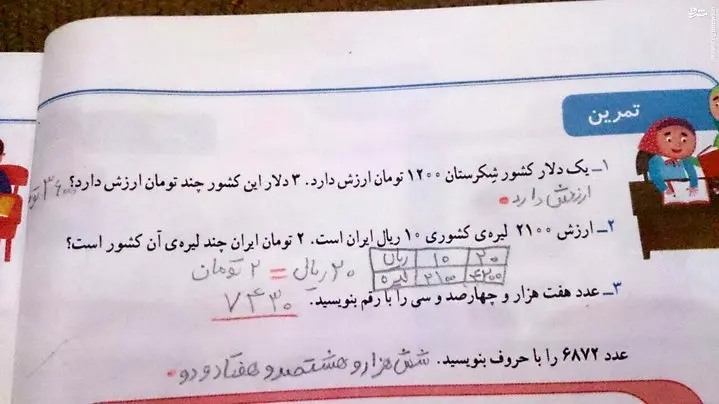 تمرین
۱ـ یک دلار کشور شِکرستان ۱۲۰۰ تومان ارزش دارد. ۳ دلار این کشور چند تومان ارزش دارد؟ ۳۶۰۰
ارزش دارد.
۲ـ ارزش ۲۱۰۰ لیره‌ی کشوری ۱۰ ریال ایران است. ۲ تومان ایران چند لیره‌ی آن کشور است؟
ریال ۱۰ ۲۰
لیره ۲۱۰۰ ۴۲۰۰
۲۰ ریال = ۲ تومان
۳ـ عدد هفت هزار و چهارصد و سی را با رقم بنویسید. ۷۴۳۰
عدد ۶۸۷۲ را با حروف بنویسید. شش هزار و هشتصد و هفتاد و دو.